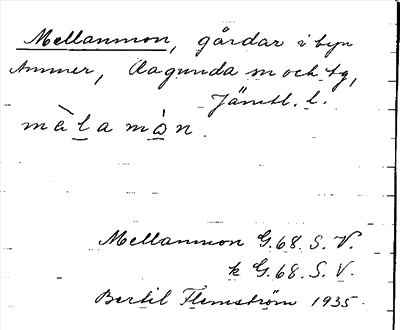 Mellanmon, gårdar i byn
Ammer, Ragunda sn och tg,
Jämtl. l.
mèlamòn.
Mellanmon G.68. S. V.
k G.68. S. V.
Bertil Flemström 1935.